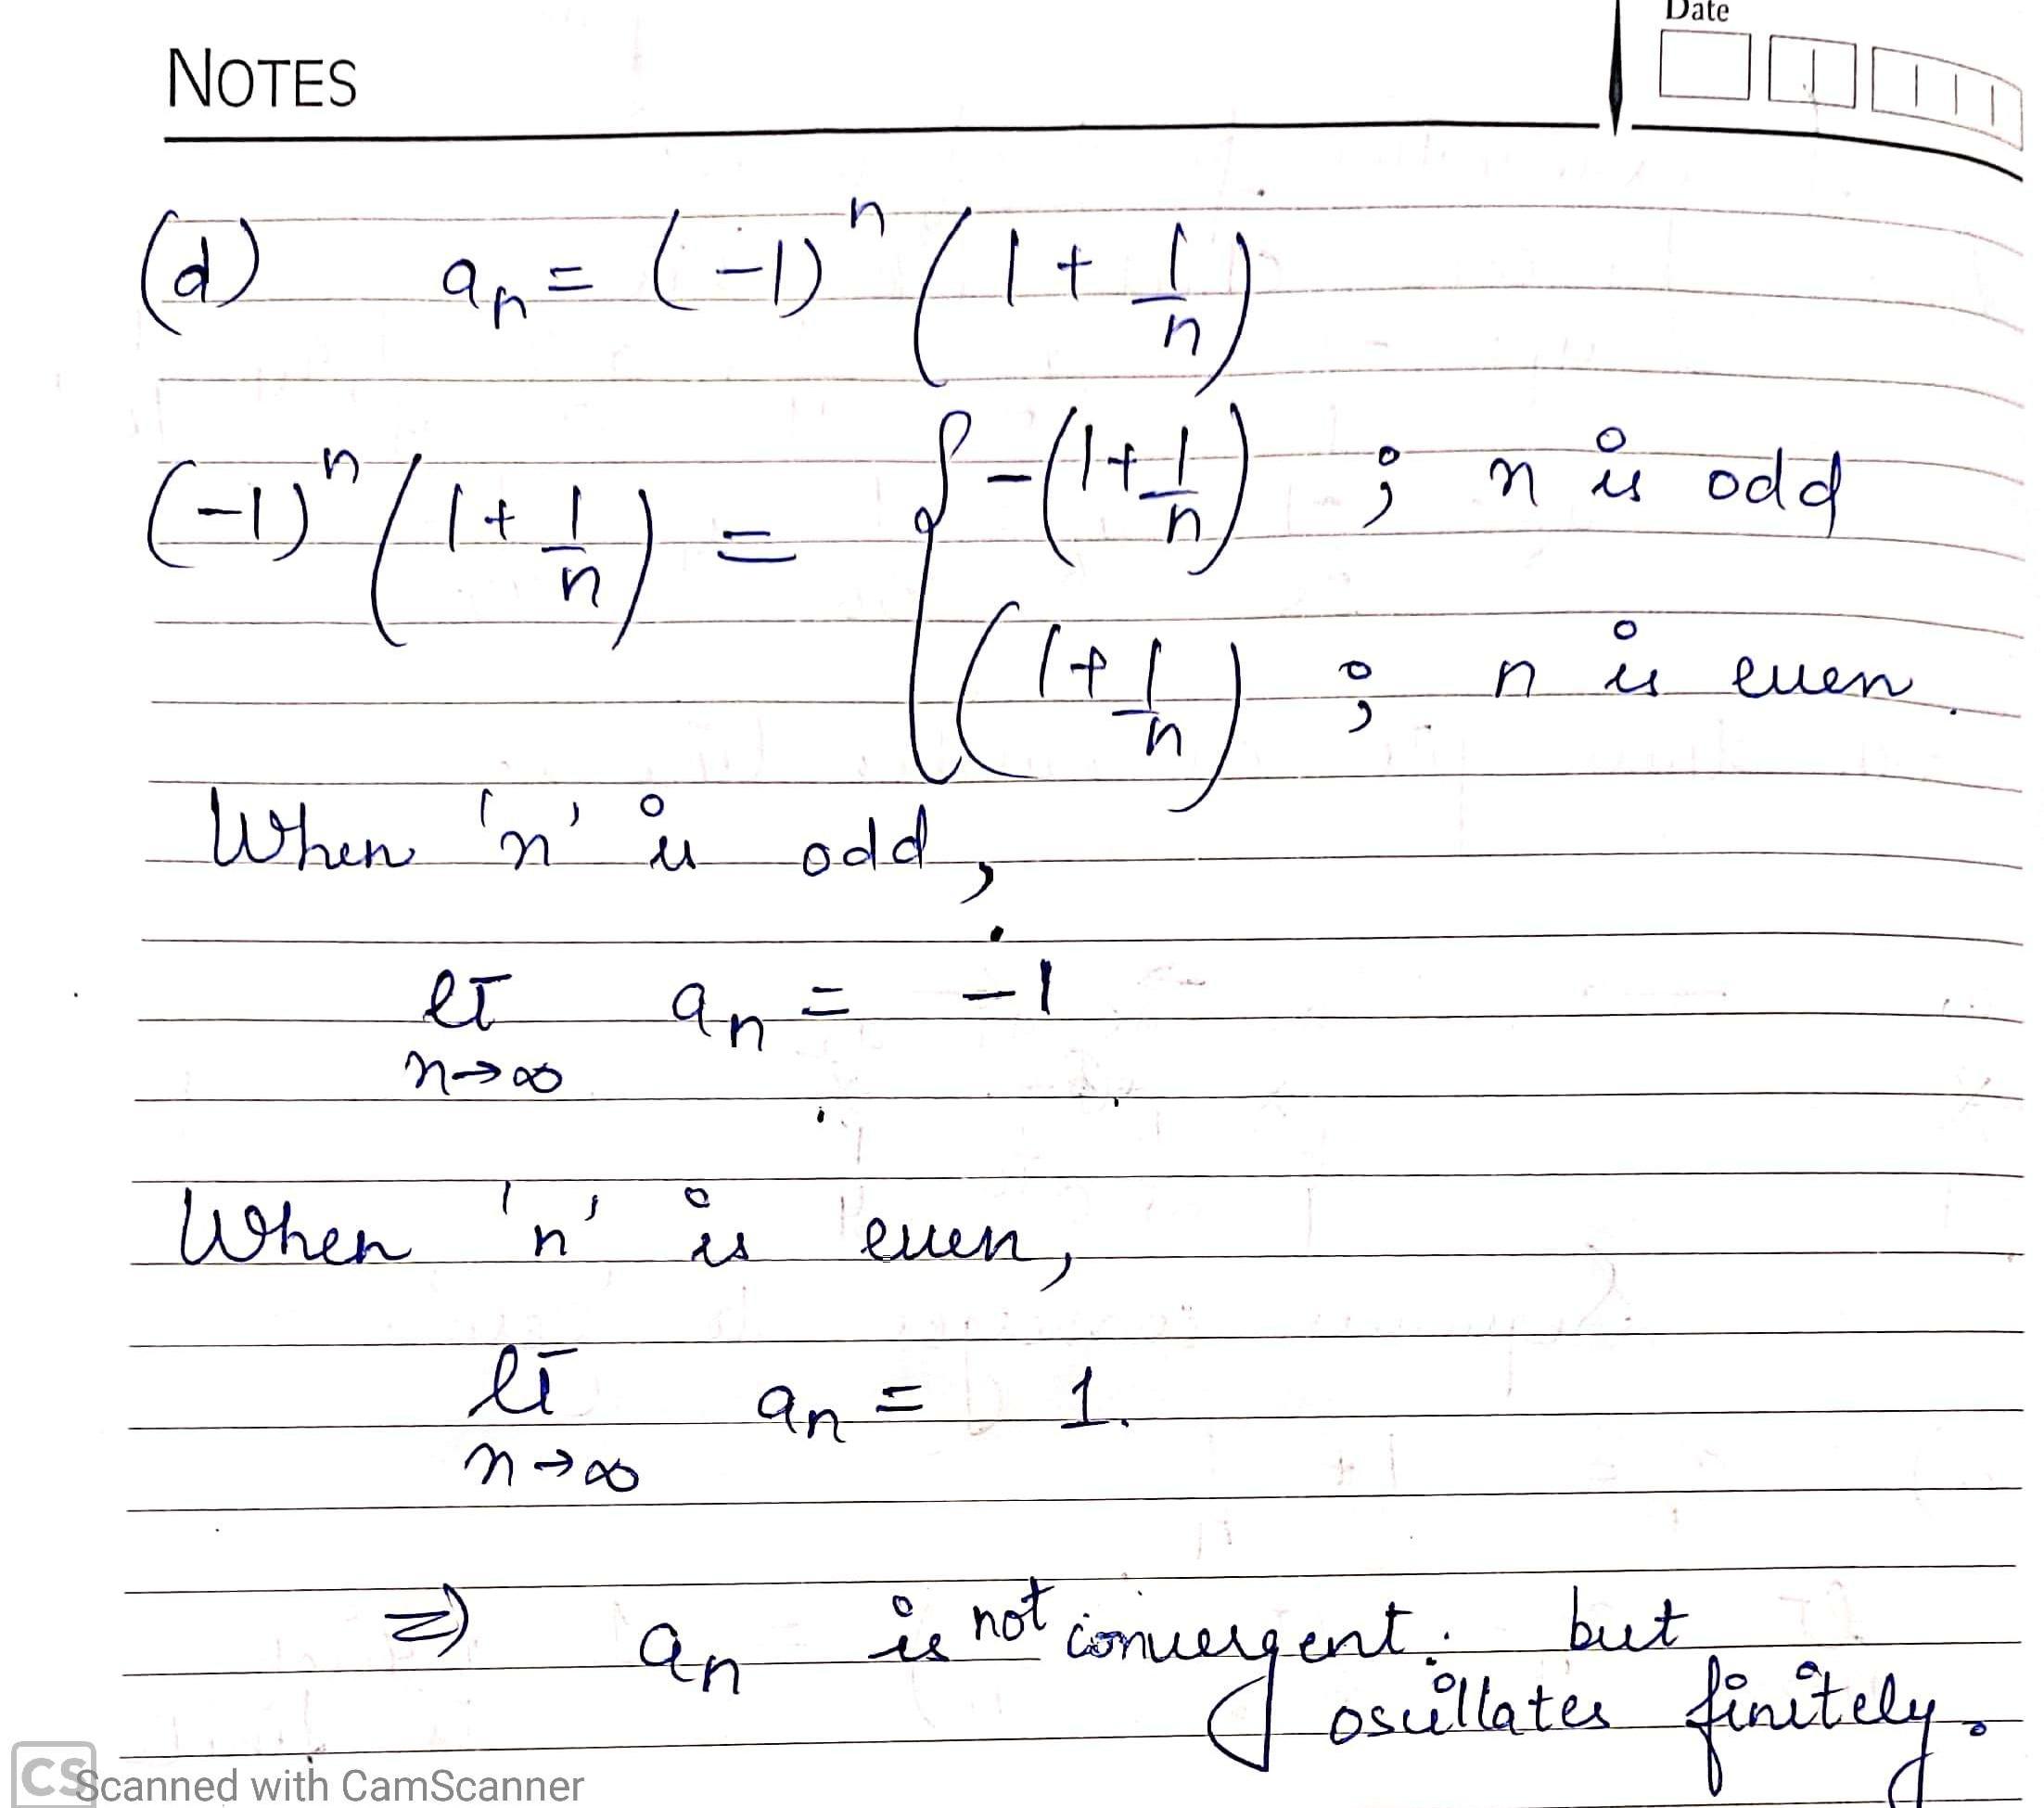 Date
NOTES
(d) aₙ = (-1)ⁿ (1 + 1/n)
(-1)ⁿ (1 + 1/n) = { -(1 + 1/n) ; n is odd
(1 + 1/n) ; n is even.
When 'n' is odd,
lt aₙ = -1
n→∞
When 'n' is even,
lt aₙ = 1.
n→∞
⇒ aₙ is not convergent. but
oscillates finitely.
CS Scanned with CamScanner